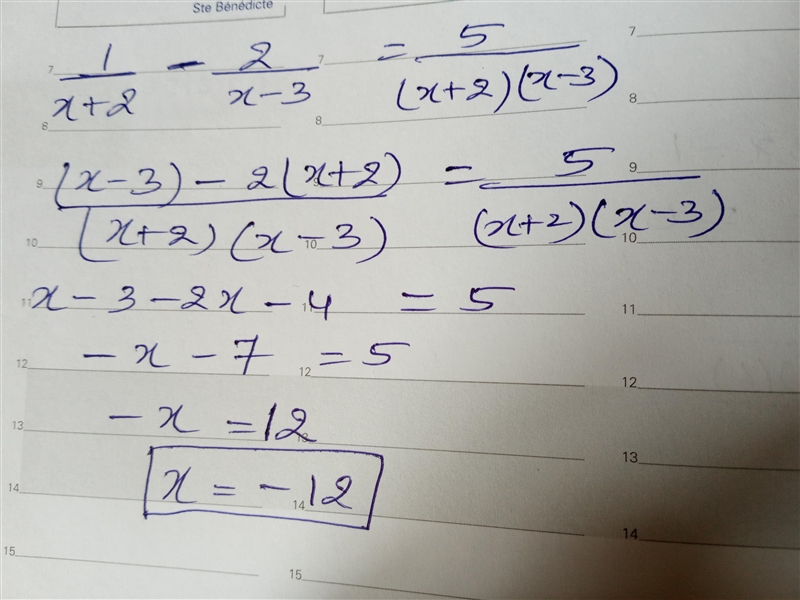 Ste Bénédicte
7 7 7
1/(x+2) - 2/(x-3) = 5/((x+2)(x-3))
8 8 8
9 9
((x-3) - 2(x+2))/((x+2)(x-3)) = 5/((x+2)(x-3))
10 10 10
x - 3 - 2x - 4 = 5
11 11 11
- x - 7 = 5
12 12 12
- x = 12
13 13 13
x = - 12
14 14 14
15 15